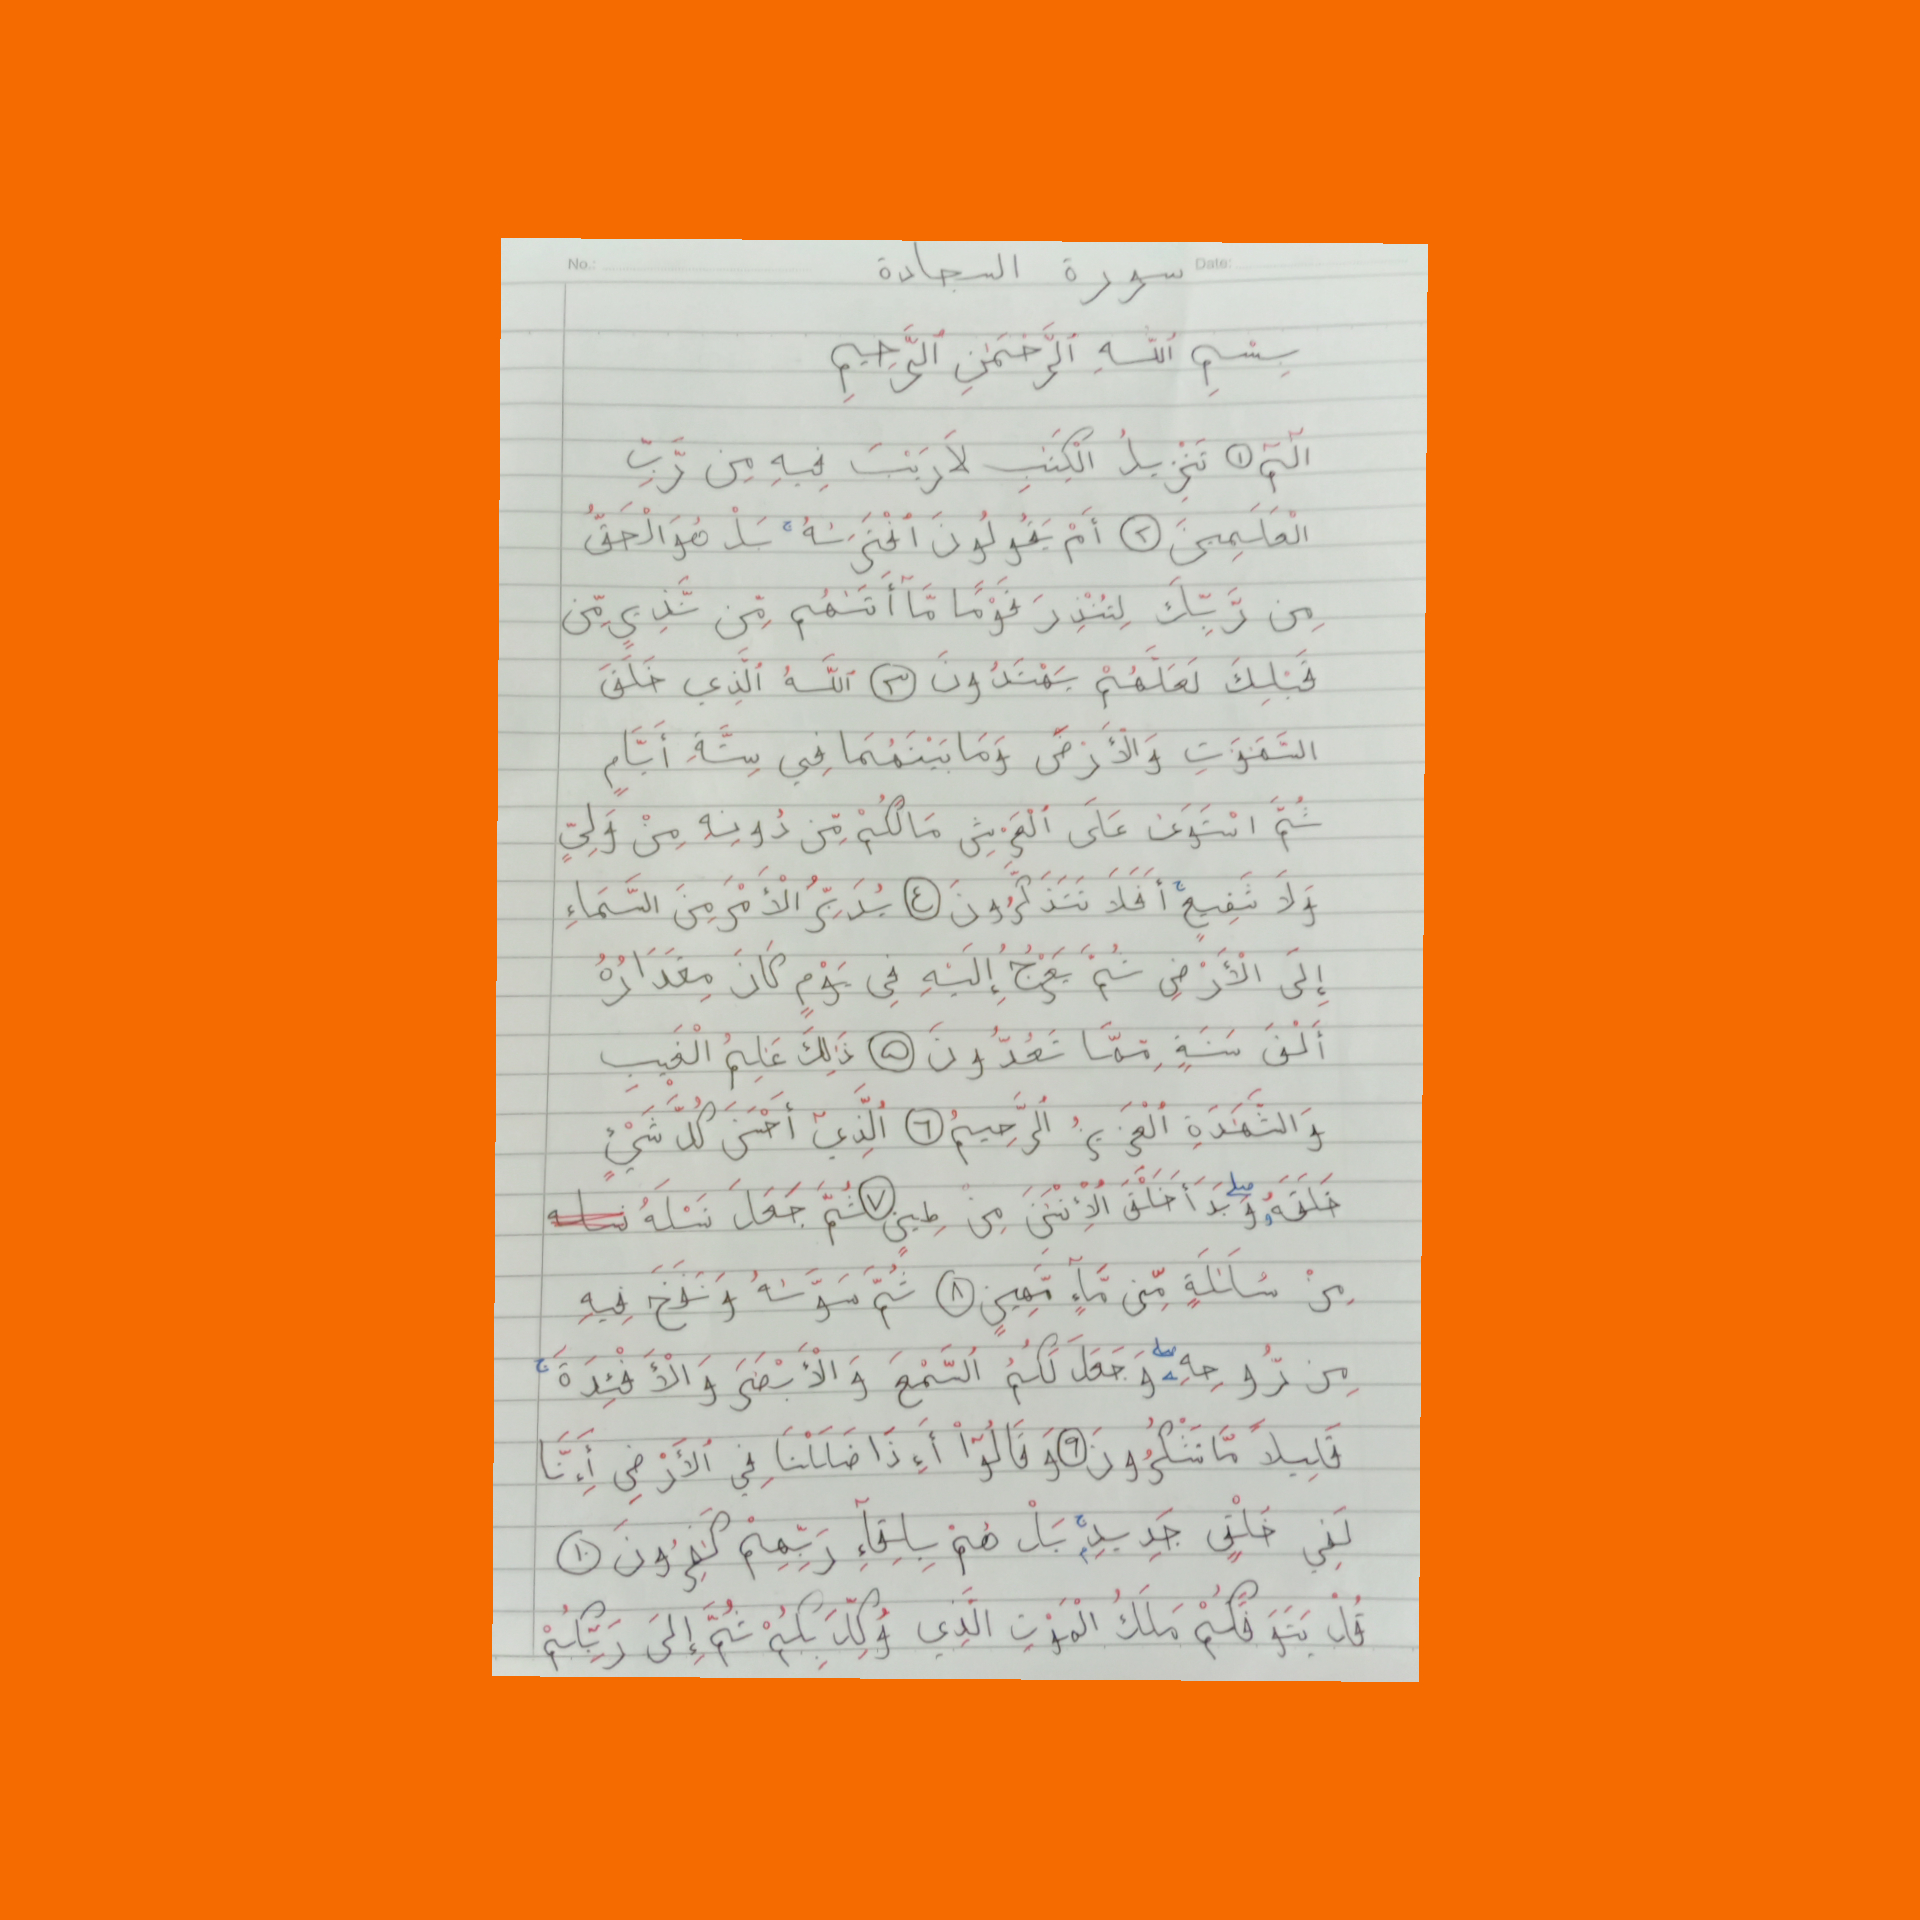 No.: Date:
سورة السجادة
بِسْمِ ٱللَّهِ ٱلرَّحْمَٰنِ ٱلرَّحِيمِ
الٓمٓ ١ تَنْزِيلُ الْكِتَٰبِ لَا رَيْبَ فِيهِ مِن رَّبِّ
الْعَٰلَمِينَ ٢ أَمْ يَقُولُونَ ٱفْتَرَىٰهُ ۚ بَلْ هُوَ الْحَقُّ
مِن رَّبِّكَ لِتُنْذِرَ قَوْمًا مَّآ أَتَىٰهُم مِّن نَّذِيرٍ مِّن
قَبْلِكَ لَعَلَّهُمْ يَهْتَدُونَ ٣ ٱللَّهُ ٱلَّذِي خَلَقَ
السَّمَٰوَٰتِ وَالْأَرْضَ وَمَا بَيْنَهُمَا فِي سِتَّةِ أَيَّامٍ
ثُمَّ اسْتَوَىٰ عَلَى ٱلْعَرْشِ مَا لَكُمْ مِّن دُونِهِ مِنْ وَلِيٍّ
وَلَا شَفِيعٍ ۚ أَفَلَا تَتَذَكَّرُونَ ٤ يُدَبِّرُ الْأَمْرَ مِنَ السَّمَاءِ
إِلَى الْأَرْضِ ثُمَّ يَعْرُجُ إِلَيْهِ فِي يَوْمٍ كَانَ مِقْدَارُهُ
أَلْفَ سَنَةٍ مِّمَّا تَعُدُّونَ ٥ ذَٰلِكَ عَٰلِمُ الْغَيْبِ
وَالشَّهَٰدَةِ ٱلْعَزِيزُ ٱلرَّحِيمُ ٦ ٱلَّذِيٓ أَحْسَنَ كُلَّ شَيْءٍ
خَلَقَهُۥ ۖ وَبَدَأَ خَلْقَ الْإِنْسَٰنِ مِنْ طِينٍ ٧ ثُمَّ جَعَلَ نَسْلَهُ نسله
مِنْ سُلَٰلَةٍ مِّن مَّآءٍ مَّهِينٍ ٨ ثُمَّ سَوَّىٰهُ وَنَفَخَ فِيهِ
مِن رُّوحِهِۦ ۖ وَجَعَلَ لَكُمُ السَّمْعَ وَالْأَبْصَٰرَ وَالْأَفْـِٔدَةَ ۚ
قَلِيلًا مَّا تَشْكُرُونَ ٩ وَقَالُوٓا۟ أَءِذَا ضَلَلْنَا فِي ٱلْأَرْضِ أَءِنَّا
لَفِي خَلْقٍ جَدِيدٍۭ ۚ بَلْ هُمْ بِلِقَآءِ رَبِّهِمْ كَٰفِرُونَ ١٠
قُلْ يَتَوَفَّىٰكُمْ مَلَكُ الْمَوْتِ الَّذِي وُكِّلَ بِكُمْ ثُمَّ إِلَىٰ رَبِّكُمْ